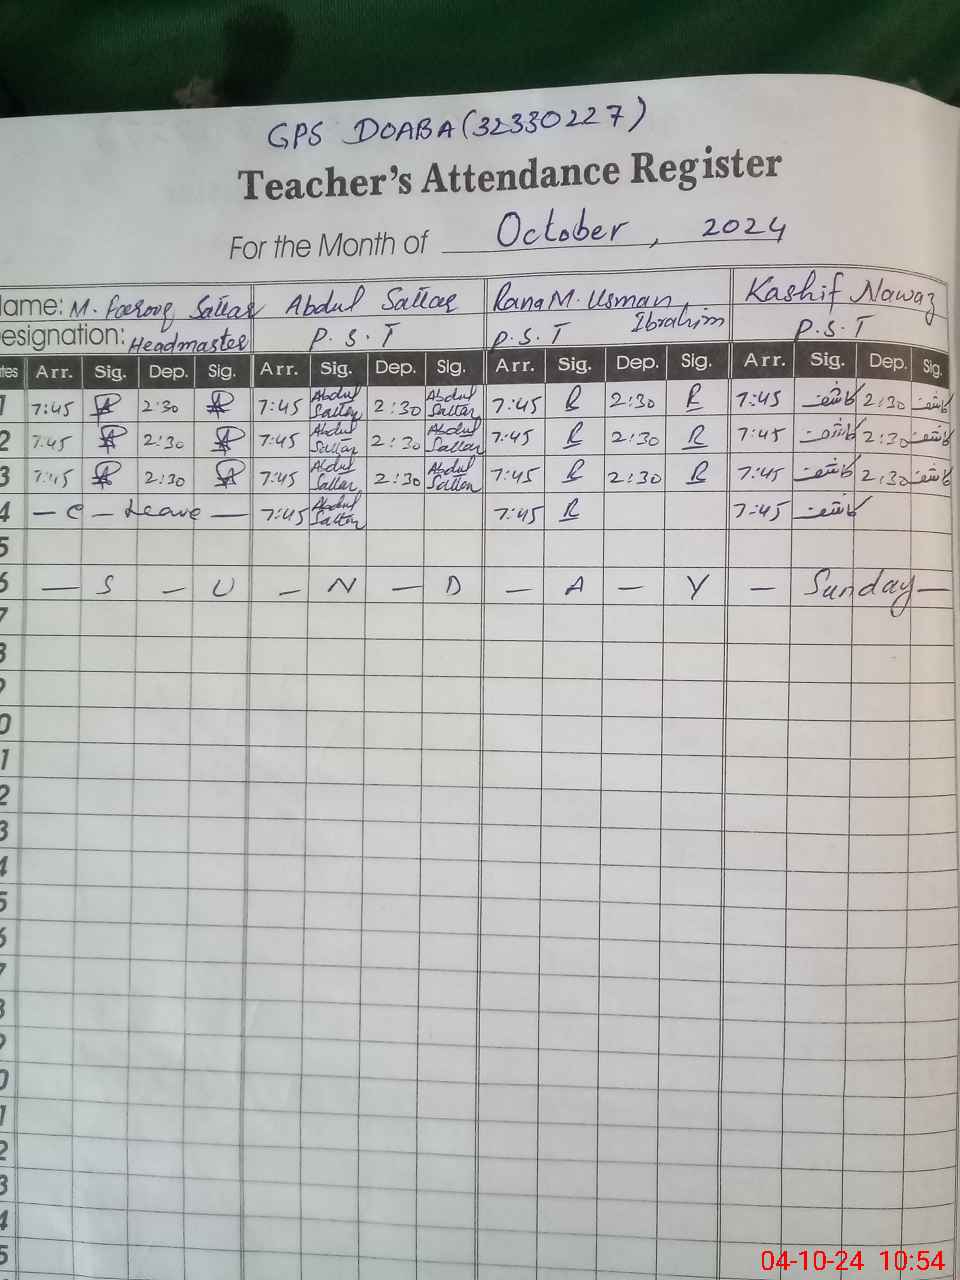 GPS DOABA (32330227)
Teacher's Attendance Register
For the Month of October, 2024
Name: M. Farooq Sattar Abdul Sattar Rana M. Usman Ibrahim Kashif Nawaz
Designation: Headmaster P.S.T P.S.T P.S.T
tes Arr. Sig. Dep. Sig. Arr. Sig. Dep. Sig. Arr. Sig. Dep. Sig. Arr. Sig. Dep. Sig.
1 7:45 2:30 7:45 Abdul Sattar 2:30 Abdul Sattar 7:45 R 2:30 R 7:45 کاشف 2:30 کاشف
2 7:45 2:30 7:45 Abdul Sattar 2:30 Abdul Sattar 7:45 R 2:30 R 7:45 کاشف 2:30 کاشف
3 7:45 2:30 7:45 Abdul Sattar 2:30 Abdul Sattar 7:45 R 2:30 R 7:45 کاشف 2:30 کاشف
4 — C — Leave — 7:45 Abdul Sattar 7:45 R 7:45 کاشف
5
6 — S — U — N — D — A — Y — Sunday —
7
8
9
0
1
2
3
4
5
6
7
8
9
0
1
2
3
4
5
04-10-24 10:54